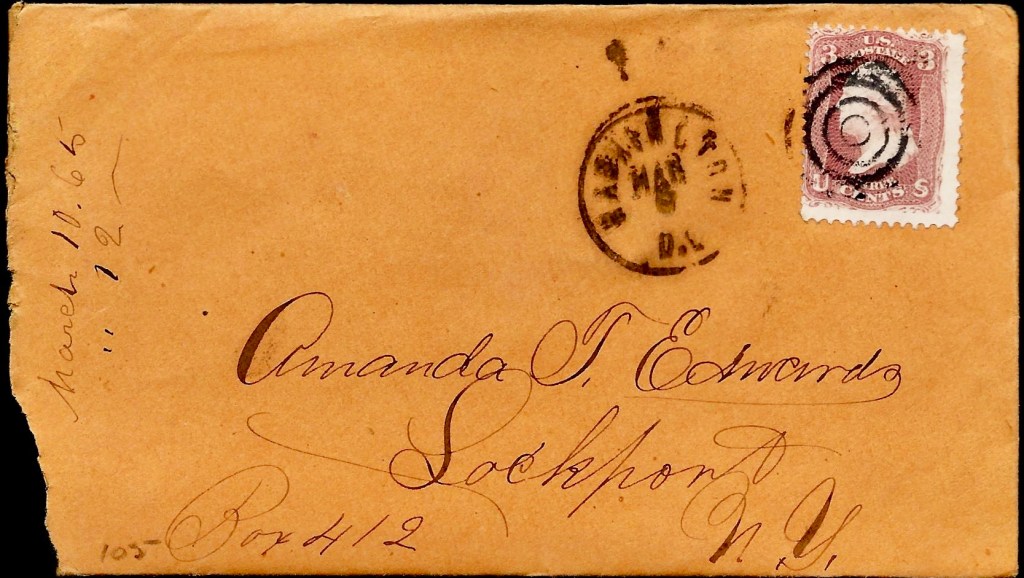 3 U.S. 3
POSTAGE
U THREE S
CENTS
WASHINGTON
MAR
D.C
March 10. 65
" 12
Amanda T. Edwards
Lockport
N.Y.
Box 412
105